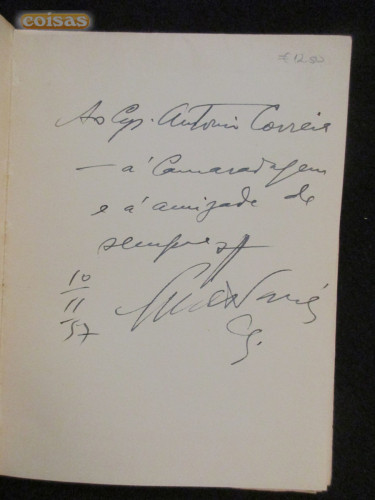 coisas
€ 12.50
Ao Cap. António Correia
— à Camaradagem
e à amizade de
sempre
10
11
57